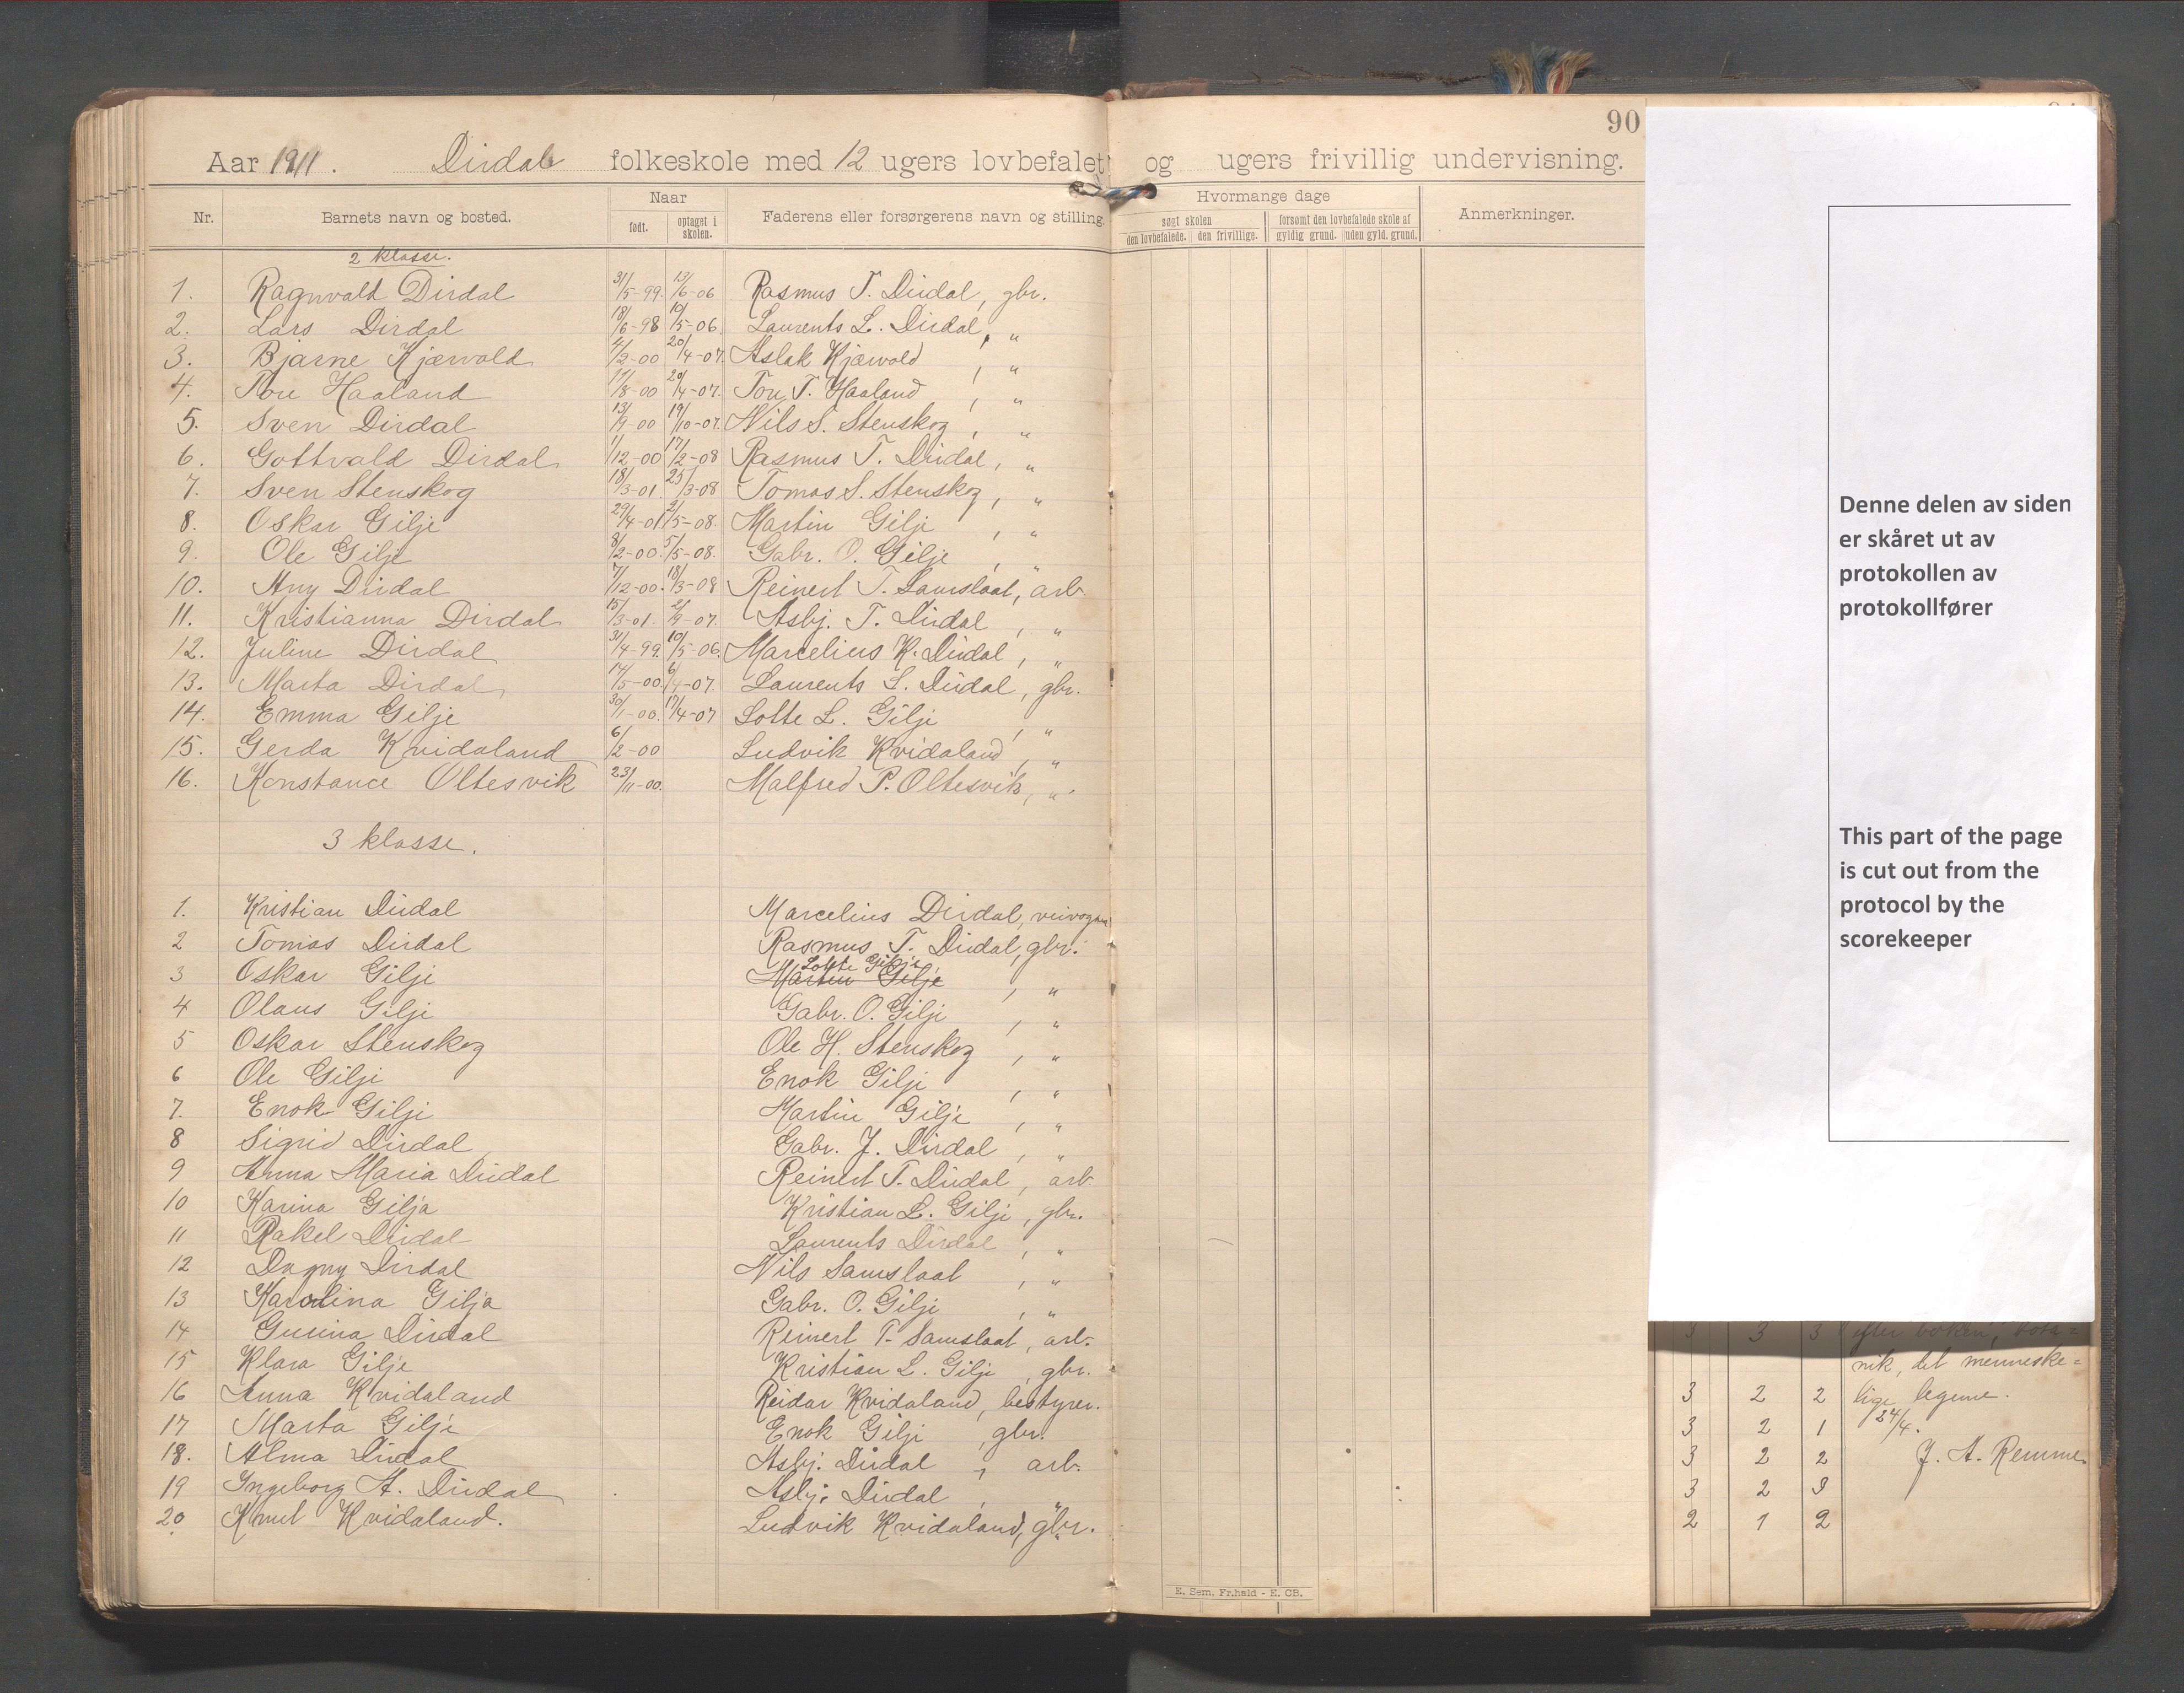 90
Aar 1911. Dirdal folkeskole med 12 ugers lovbefalet og ugers frivillig undervisning.
Nr. Barnets navn og bosted. Naar født. optaget i skolen. Faderens eller forsørgerens navn og stilling. Hvormange dage søgt skolen den lovbefalede. den frivillige. forsømt den lovbefalede skole af gyldig grund. uden gyld. grund. Anmerkninger.
2 klasse.
1. Ragnvald Dirdal 31/5-99. 13/6-06 Rasmus T. Dirdal, gbr.
2. Lars Dirdal 18/6-98 10/5-06. Laurents L. Dirdal, "
3. Bjarne Kjærvold 4/2-00 20/4-07. Aslak Kjærvold, "
4. Tore Haaland 11/8-00 20/4-07. Tore T. Haaland, "
5. Sven Dirdal 13/9-00 19/10-07. Nils S. Stenskog, "
6. Gottvald Dirdal 1/12-00 17/2-08 Rasmus T. Dirdal, "
7. Sven Stenskog 18/3-01. 25/3-08 Tomas S. Stenskog, "
8. Oskar Gilje 29/4-01 2/5-08. Martin Gilje, "
9. Ole Gilje 8/2-00. 5/5-08. Gabr. O. Gilje, "
10. Any Dirdal 7/12-00. 18/3-08 Reinert T. Samslaat, arb.
11. Kristianna Dirdal 15/3-01. 2/9-07. Asbj. T. Dirdal, "
12. Juline Dirdal 31/4-99. 10/5-06. Marcelius K. Dirdal, "
13. Marta Dirdal 14/5-00. 6/4-07. Laurents L. Dirdal, gbr.
14. Emma Gilje 30/1-00. 17/4-07 Lotte L. Gilje, "
15. Gerda Kvidaland 6/2-00 Ludvik Kvidaland, "
16. Konstance Oltesvik 23/11-00. Malfred P. Oltesvik, "
3 klasse.
1. Kristian Dirdal Marcelius Dirdal,
2 Tomas Dirdal Rasmus T. Dirdal, gbr.
Lotte Gilje
3 Oskar Gilje Martin Gilje, "
4 Olaus Gilje Gabr. O. Gilje, "
5 Oskar Stenskog Ole H. Stenskog, "
6 Ole Gilje Enok Gilje, "
7. Enok Gilje Martin Gilje, "
8 Sigrid Dirdal Gabr. J. Dirdal, "
9 Anna Maria Dirdal Reinert T. Dirdal, arb
10 Karina Gilja Kristian L. Gilje, gbr.
11 Rakel Dirdal Laurents Dirdal, "
12 Dagny Dirdal Nils Samslaat, "
13 Karolina Gilja Gabr. O. Gilje, "
14 Gurina Dirdal Reinert T. Samslaat, arb.
15 Klara Gilje Kristian L. Gilje, gbr.
16 Anna Kvidaland Reidar Kvidaland, bestyrer.
17 Marta Gilje Enok Gilje, gbr.
18. Alma Dirdal Asbj. Dirdal, arb.
19 Ingeborg A. Dirdal Asbj. Dirdal, "
20 Knut Kvidaland. Ludvik Kvidaland, gbr.
E. Sem, Fr.hald - E. CB.
Denne delen av siden
er skåret ut av
protokollen av
protokollfører
This part of the page
is cut out from the
protocol by the
scorekeeper
3 3 3 efter boken, bota=
nik, det menneske=
3 2 2 lige legeme.
3 2 1 24/4.
3 2 2 J. A. Remme.
3 2 3
2 1 2